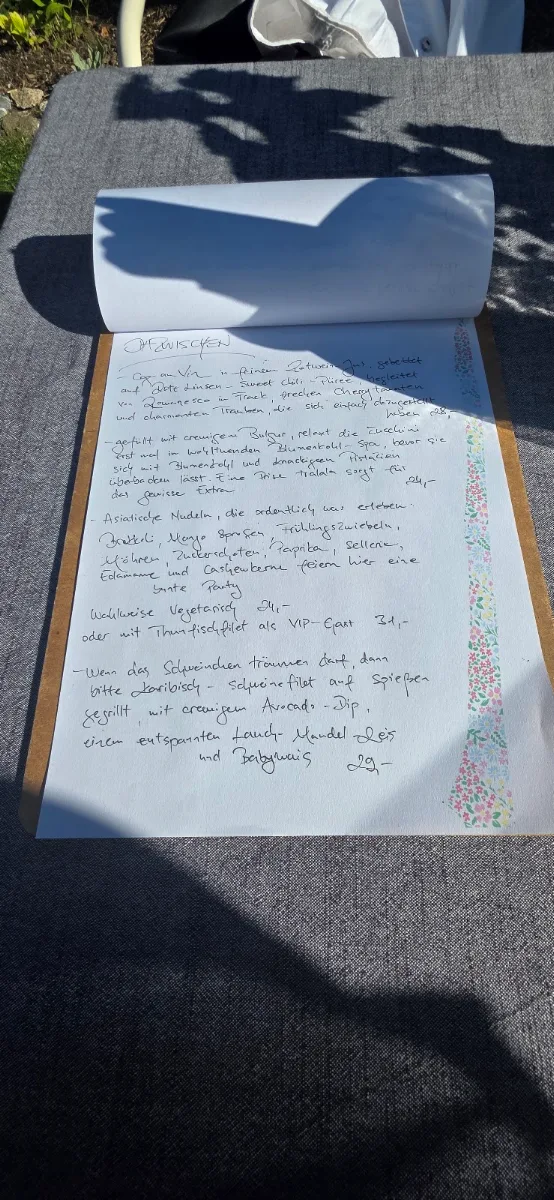 - Coq au Vin in feinem Rotwein Jus, gebettet
auf Rote Linsen - Sweet Chili - Püree, begleitet
von Romanesco im Frack, frechen Cherrytomaten
und charmanten Trauben, die sich einfach dazugesellt
haben 28,-
- gefüllt mit cremigem Bulgur, relaxt die Zucchini
erst mal im wohltuenden Blumenkohl - Spa, bevor sie
sich mit Blumenkohl und knackigen Pistazien
überbacken lässt. Eine Prise tralala sorgt für
das gewisse Extra 24,-
- Asiatische Nudeln, die ordentlich was erleben.
Brokkoli, Mungo Sprossen, Frühlingszwiebeln,
Möhren, Zuckerschoten, Paprika, Sellerie,
Edamame und Cashewkerne feiern hier eine
bunte Party
Wahlweise Vegetarisch 24,-
oder mit Thunfischfilet als VIP-Gast 31,-
- Wenn das Schweinchen träumen darf, dann
bitte Karibisch - Schweinefilet auf Spießen
gegrillt, mit cremigem Avocado - Dip,
einem entspannten Lauch - Mandel Reis
und Babymais 29,-